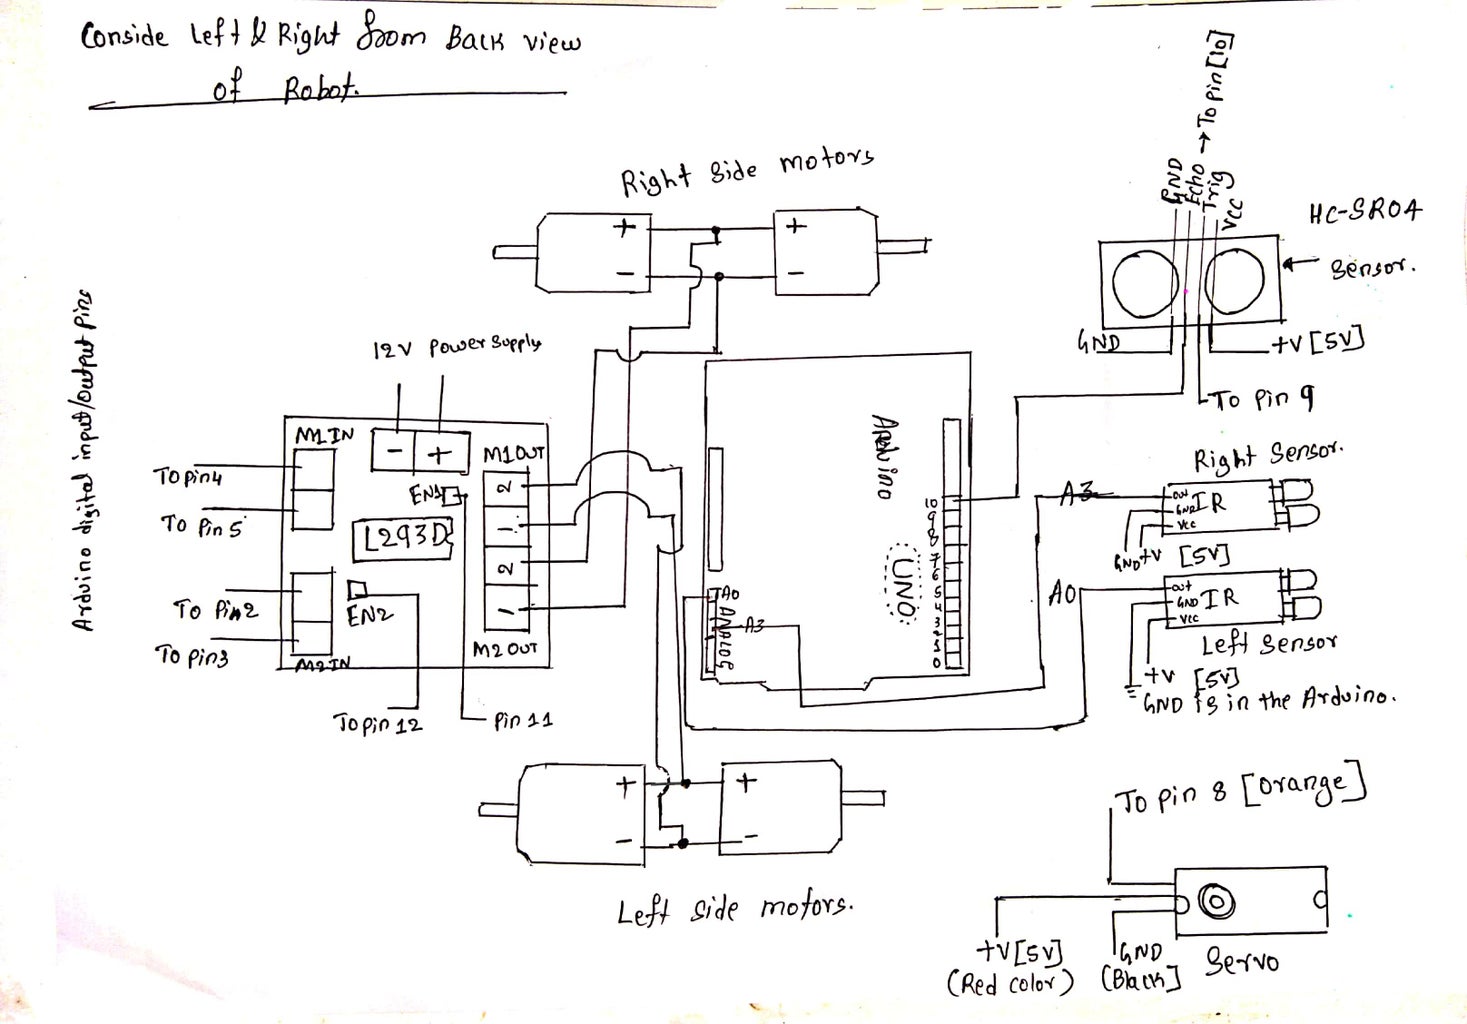 Conside Left & Right from Back view
of Robot.
Right Side motors
To pin [10]
GND
Echo
Trig
VCC
HC-SR04
Sensor.
GND
+V [5V]
To Pin 9
Arduino digital input/output Pins
12V Power Supply
M1 IN
- +
M1 OUT
To pin4
To Pin5
EN1
L293D
2
1
2
1
To Pin2
To pin3
EN2
M2 IN
M2 OUT
To pin 12
Pin 11
+ +
- -
Arduino
UNO
10
9
8
7
6
5
4
3
2
1
0
A0
ANALOG
A3
Right Sensor.
A3
out
GND
Vcc
IR
GND +V [5V]
A0
out
GND
Vcc
IR
Left Sensor
+V [5V]
GND is in the Arduino.
+ +
- -
Left side motors.
To pin 8 [orange]
+V[5V]
(Red color)
GND
(Black]
Servo